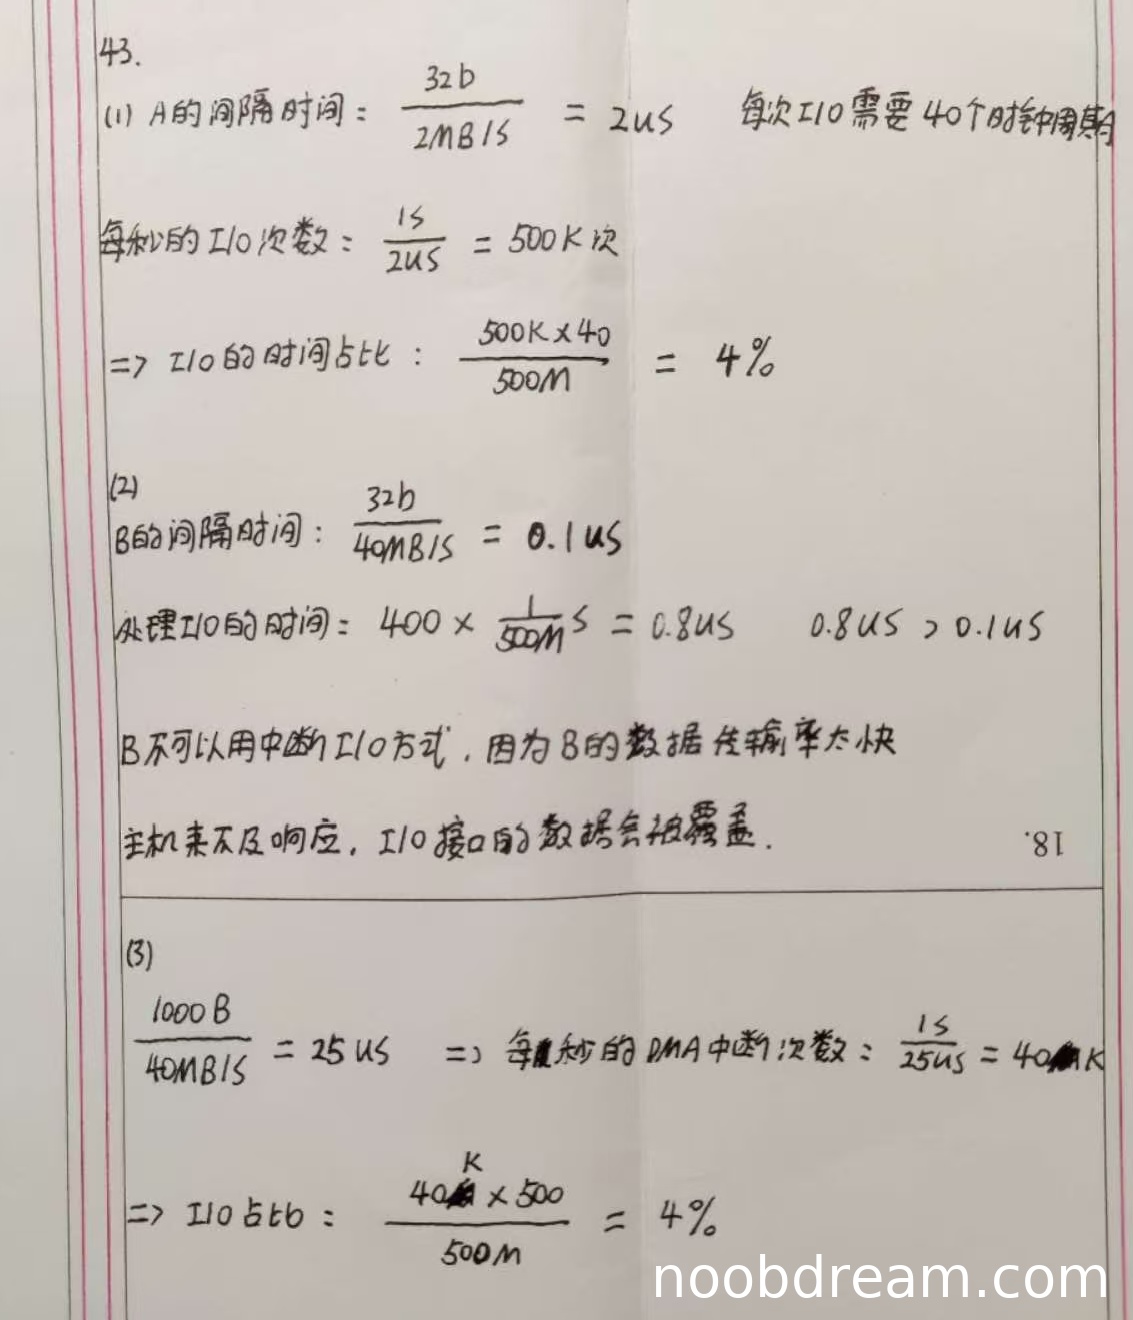 43.
(1) A的间隔时间: 32b / 2MB/s = 2us 每次I/O需要40个时钟周期
每秒的I/O次数: 1s / 2us = 500K次
=> I/O的时间占比: 500K×40 / 500M = 4%
(2)
B的间隔时间: 32b / 40MB/s = 0.1us
处理I/O的时间: 400 × 1/500M s = 0.8us 0.8us > 0.1us
B不可以用中断I/O方式,因为B的数据传输率太快
主机来不及响应,I/O接口的数据会被覆盖.
18.
(3)
1000B / 40MB/s = 25us => 每秒的DMA中断次数: 1s / 25us = 40K
=> I/O占比: 40K × 500 / 500M = 4%
noobdream.com